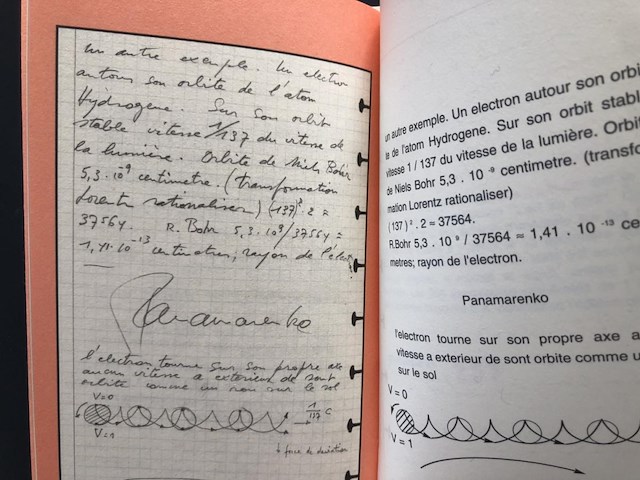 un autre exemple. Un electron
autour son orbite de l'atom
Hydrogene. Sur son orbit
stable vitesse 1/137 du vitesse de
la lumière. Orbite de Niels Bohr
5,3 . 10⁹ centimetre. (transformation
Lorentz rationaliser) (137)² . 2 =
37564. R. Bohr 5,3 . 10⁹/37564 =
1,41 . 10⁻¹³ centimetres; rayon de l'elec
Panamarenko
l'electron tourne sur son propre axe
aucun vitesse a exterieur de sont
orbite comme un roue sur le sol
V=0
1/137 c
V=1
force de deviation
un autre exemple. Un electron autour son orbi
te de l'atom Hydrogene. Sur son orbit stabl
vitesse 1 / 137 du vitesse de la lumière. Orbit
de Niels Bohr 5,3 . 10 ⁻⁹ centimetre. (transfo
mation Lorentz rationaliser)
(137) ² . 2 = 37564.
R.Bohr 5,3 . 10 ⁻⁹ / 37564 = 1,41 . 10 ⁻¹³ ce
metres; rayon de l'electron.
Panamarenko
l'electron tourne sur son propre axe a
vitesse a exterieur de sont orbite comme u
sur le sol
V = 0
V = 1